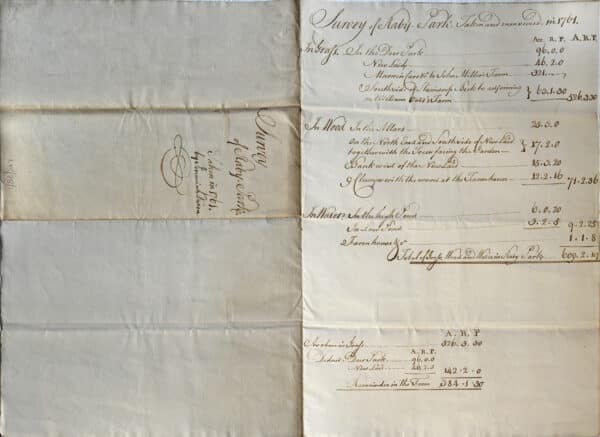 Survey of Raby Park. Taken and measured in 1761.
Acr. R. P. A. R. P.
In Grass. In the Deer Park 96.0.0
New Laid 46.2.0
Farm 321.
South side of Beck to adjoining
William Farm } 63.1.30 526.3.30
In Wood. In the 25.3.0
On the North East and South side of New Laid
together with the Trees facing the Garden } 17.2.0
Bank west of the New Laid 15.3.20
9 Clumps with the wood at the Farmhouse 12.2.16 71.2.36
In Water. In the high Pond 6.0.20
In Low Pond 3.2.5 9.2.25
Farmhouse &c 1.1.8
Total of Grass Wood and Water in Raby Park 609.2.19
A. R. P
As above in Grass 526.3.30
A. R. P.
Deduct Deer Park 96.0.0
New Laid 46.2.0 142.2.0
Remainder in the Farm 384.1.30
Survey
of Raby Park
Taken in 1761,
by